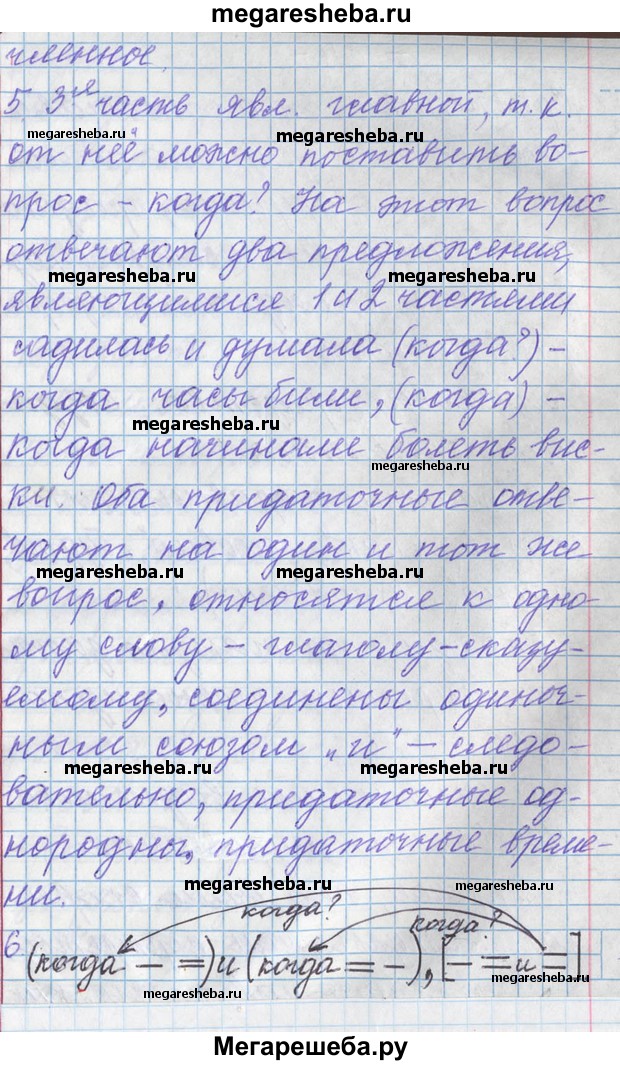 megaresheba.ru
членное.
5. 3я часть явл. главной, т.к.
megaresheba.ru megaresheba.ru
от неё можно поставить во-
прос - когда? На этот вопрос
отвечают два предложения,
megaresheba.ru megaresheba.ru
являющимися 1 и 2 частями
садилась и думала (когда?) -
когда часы били, (когда) -
megaresheba.ru
когда начинали болеть вис-
megaresheba.ru
ки. Оба придаточные отве-
чают на один и тот же
megaresheba.ru megaresheba.ru
вопрос, относятся к одно-
му слову - глаголу-сказу-
емому, соединены одиноч-
ным союзом „и" - следо-
megaresheba.ru megaresheba.ru
вательно, придаточные од-
нородны, придаточные време-
ни.
megaresheba.ru megaresheba.ru
когда? когда?
6 (когда — =) и (когда = —), [— = и =]
megaresheba.ru megaresheba.ru
Мегарешеба.ру